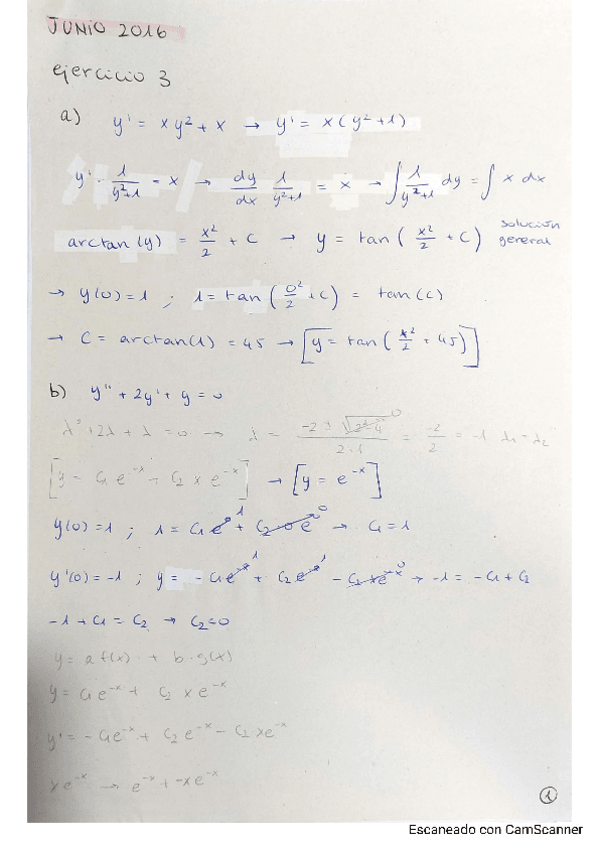 JUNIO 2016
ejercicio 3
a) y' = xy² + x → y' = x(y²+1)
y' · 1/(y²+1) = x → dy/dx 1/(y²+1) = x → ∫ 1/(y²+1) dy = ∫ x dx
arctan(y) = x²/2 + C → y = tan(x²/2 + C) solución general
→ y(0)=1 ; 1 = tan(0²/2 + C) = tan(C)
→ C = arctan(1) = 45 → [y = tan(x²/2 + 45)]
b) y'' + 2y' + y = 0
λ² + 2λ + λ = 0 → λ = (-2 ± √(2²-4))/(2·1) 0 = -2/2 = -1 λ1 = λ2
[y = C1 e^-x + C2 x e^-x] → [y = e^-x]
y(0) = 1 ; 1 = C1 e^0 1 + C2 · 0 e^0 0 → C1 = 1
y'(0) = -1 ; y = - C1 e^-x 1 + C2 e^-x 1 - C2 x e^-x 0 → -1 = -C1 + C2
-1 + C1 = C2 → C2 = 0
y = a f(x) + b · g(x)
y = C1 e^-x + C2 x e^-x
y' = -C1 e^-x + C2 e^-x - C2 x e^-x
x e^-x → e^-x + -x e^-x
1
Escaneado con CamScanner